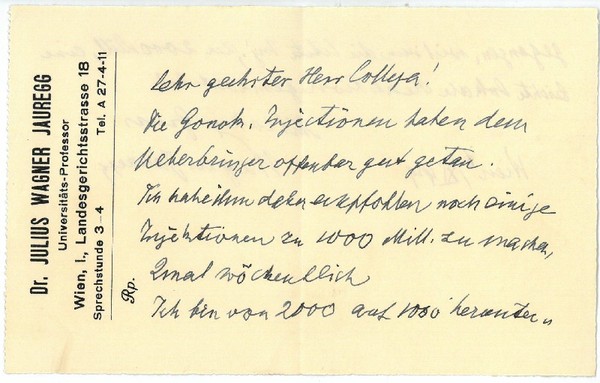 Dr. JULIUS WAGNER JAUREGG
Universitäts-Professor
Wien, I., Landesgerichtsstrasse 18
Sprechstunde 3–4 Tel. A 27-4-11
Rp.
Sehr geehrter Herr Collega!
Die Gonok. Injectionen haben dem
Ueberbringer offenbar gut getan.
Ich habe ihm daher empfohlen noch einige
Injektionen zu 1000 Mill. zu machen,
2mal wöchentlich
Ich bin von 2000 auf 1000 herunter